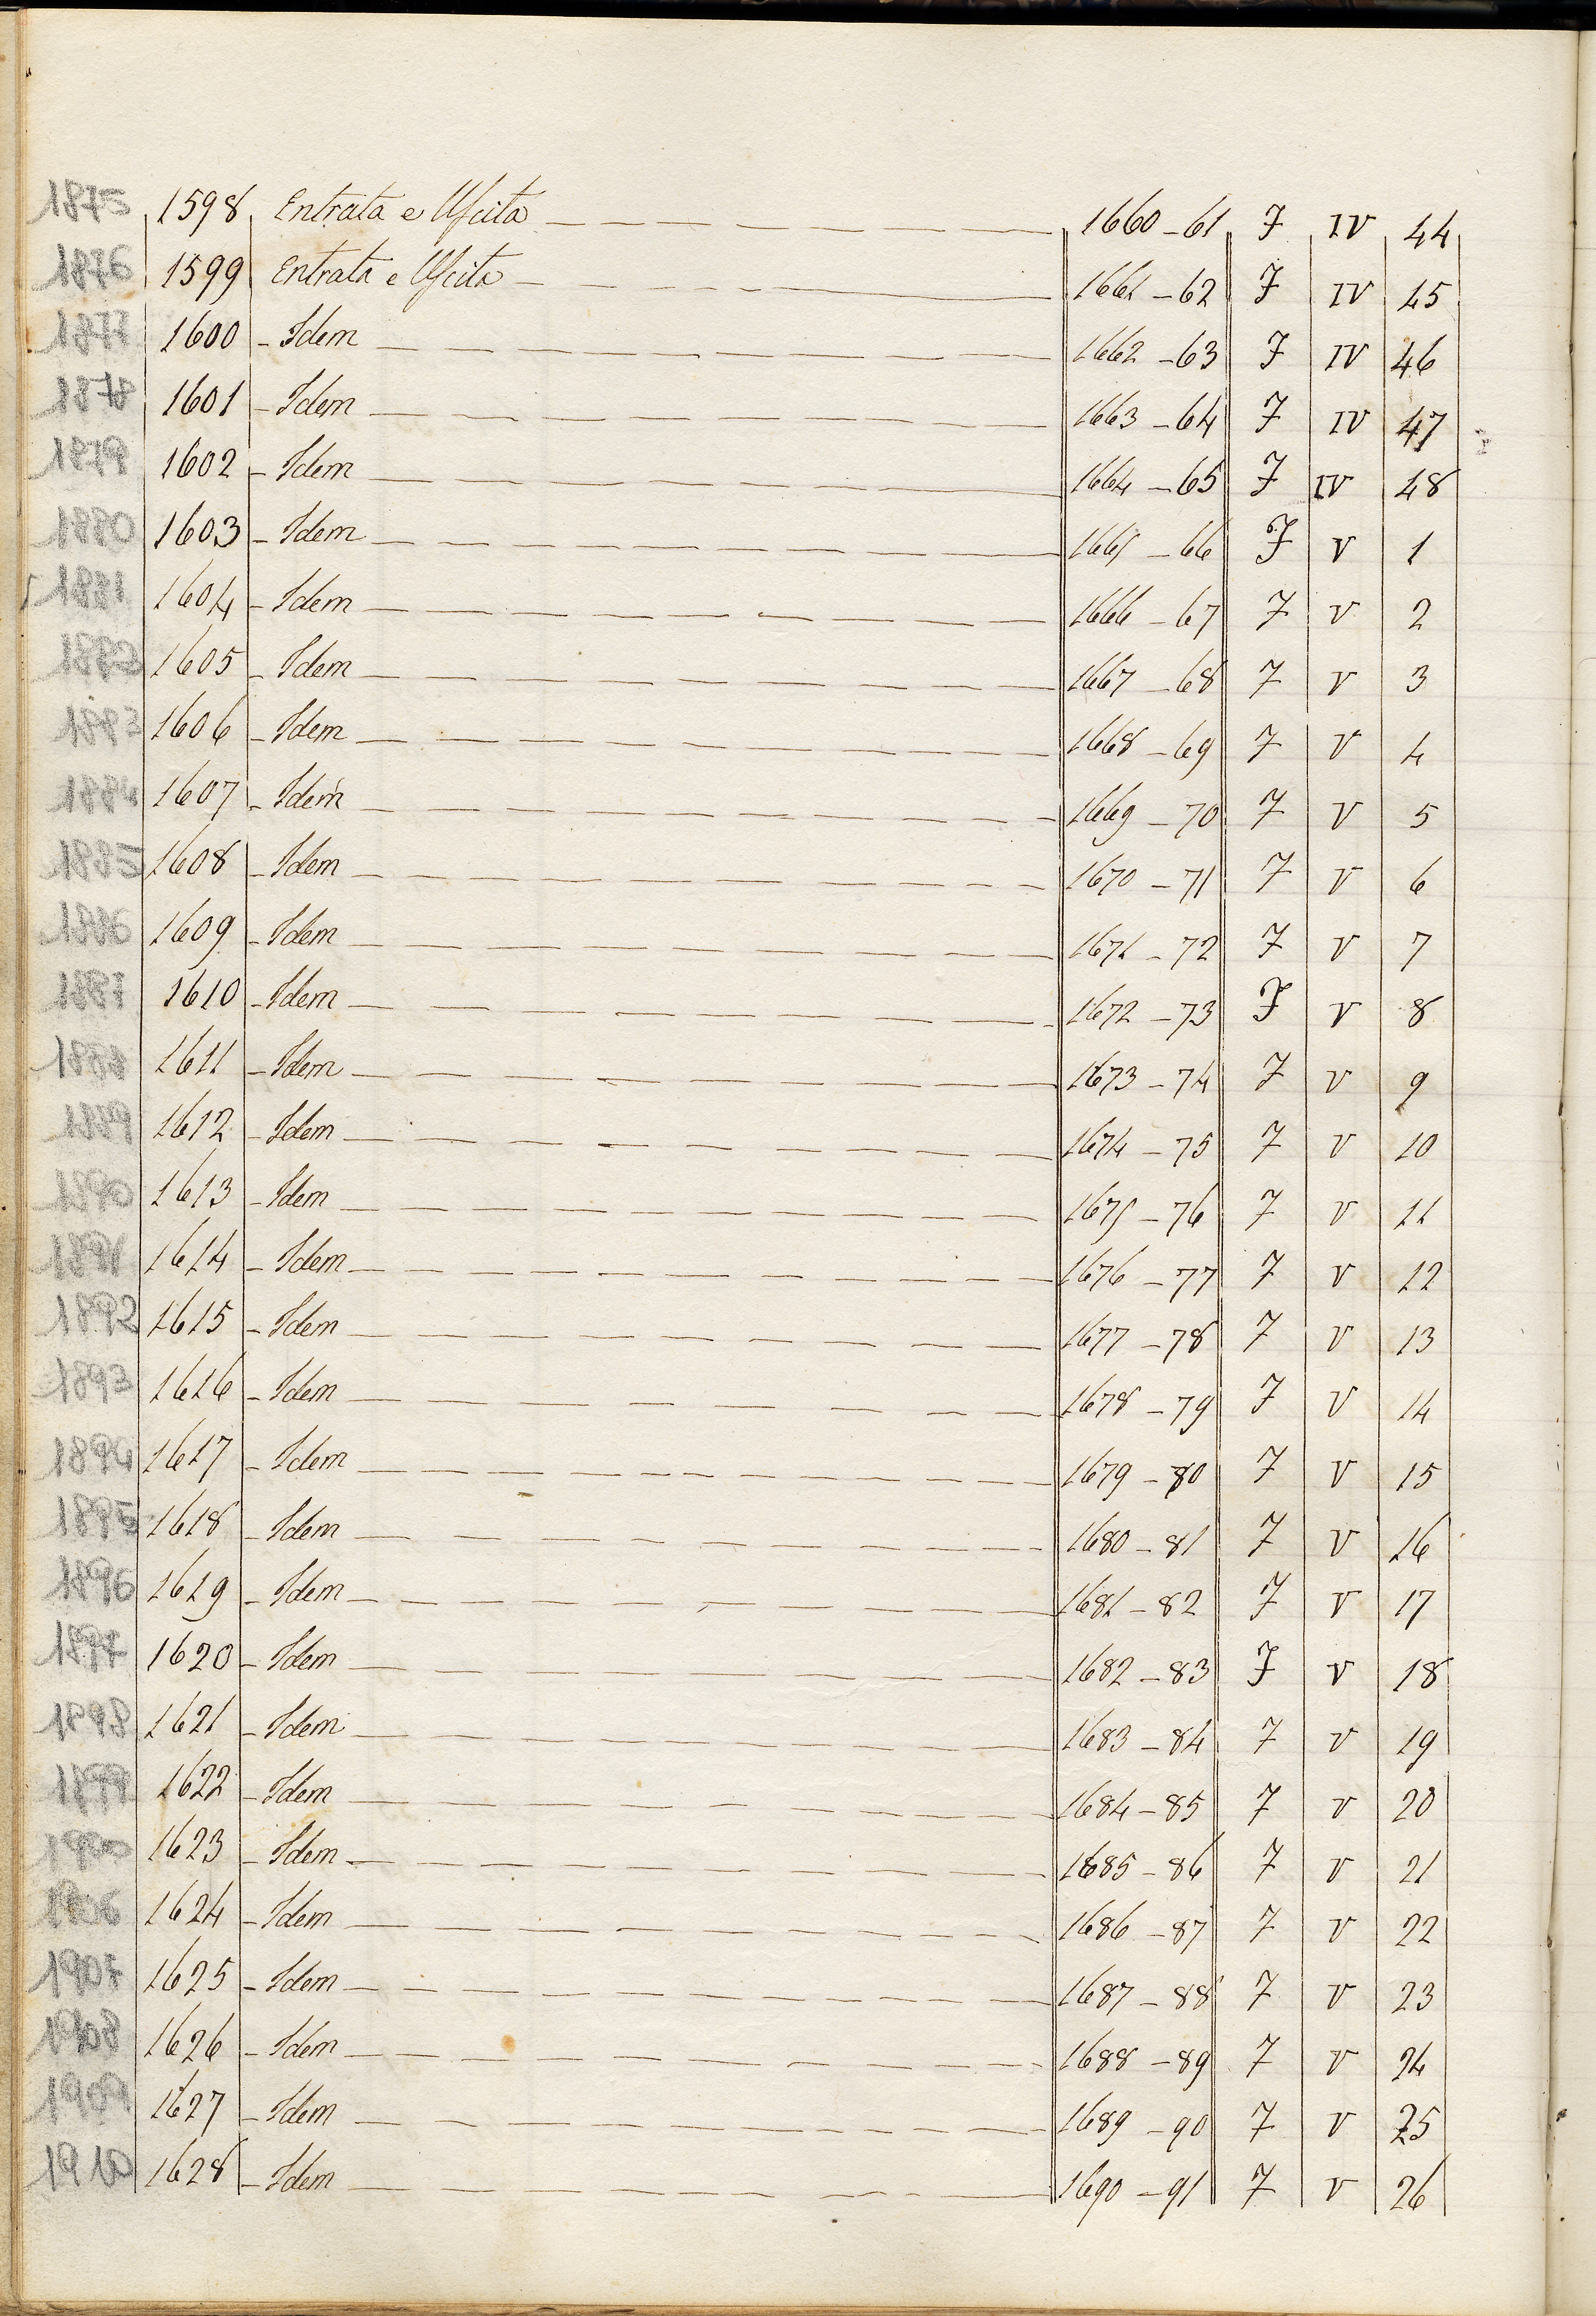 1875 1598 Entrata e Uscita 1660-61 F IV 44
1876 1599 Entrata e Uscita 1661-62 F IV 45
1877 1600 Idem 1662-63 F IV 46
1878 1601 Idem 1663-64 F IV 47
1879 1602 Idem 1664-65 F IV 48
1880 1603 Idem 1665-66 F V 1
1881 1604 Idem 1666-67 F V 2
1882 1605 Idem 1667-68 F V 3
1883 1606 Idem 1668-69 F V 4
1884 1607 Idem 1669-70 F V 5
1885 1608 Idem 1670-71 F V 6
1886 1609 Idem 1671-72 F V 7
1887 1610 Idem 1672-73 F V 8
1888 1611 Idem 1673-74 F V 9
1889 1612 Idem 1674-75 F V 10
1890 1613 Idem 1675-76 F V 11
1891 1614 Idem 1676-77 F V 12
1892 1615 Idem 1677-78 F V 13
1893 1616 Idem 1678-79 F V 14
1894 1617 Idem 1679-80 F V 15
1895 1618 Idem 1680-81 F V 16
1896 1619 Idem 1681-82 F V 17
1897 1620 Idem 1682-83 F V 18
1898 1621 Idem 1683-84 F V 19
1899 1622 Idem 1684-85 F V 20
1900 1623 Idem 1685-86 F V 21
1906 1624 Idem 1686-87 F V 22
1907 1625 Idem 1687-88 F V 23
1908 1626 Idem 1688-89 F V 24
1909 1627 Idem 1689-90 F V 25
1910 1628 Idem 1690-91 F V 26